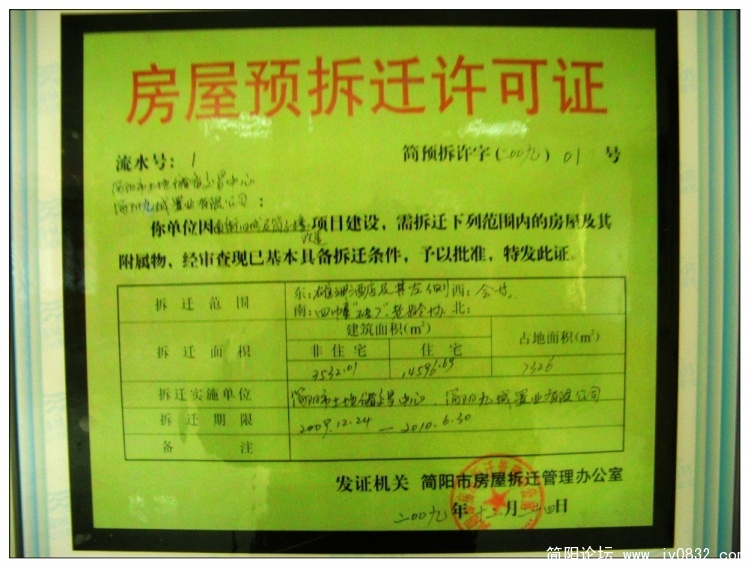 房屋预拆迁许可证
流水号：1 简预拆许字（二00九）01号
简阳市土地储备交易中心
简阳九城置业有限公司：
你单位因 项目建设，需拆迁下列范围内的房屋及其
附属物，经审查现已基本具备拆迁条件，予以批准，特发此证。
拆迁范围 东： 酒店及其左侧 西：
南：四 北：
拆迁面积 建筑面积(m²) 占地面积(m²)
非住宅 住宅
3532.01 14596.69 7326
拆迁实施单位 简阳市土地储备交易中心、简阳九城置业有限公司
拆迁期限 2009.12.24 — 2010.6.30
备注
发证机关 简阳市房屋拆迁管理办公室
二00九年十二月二十四日
简阳论坛 www.jy0832.com